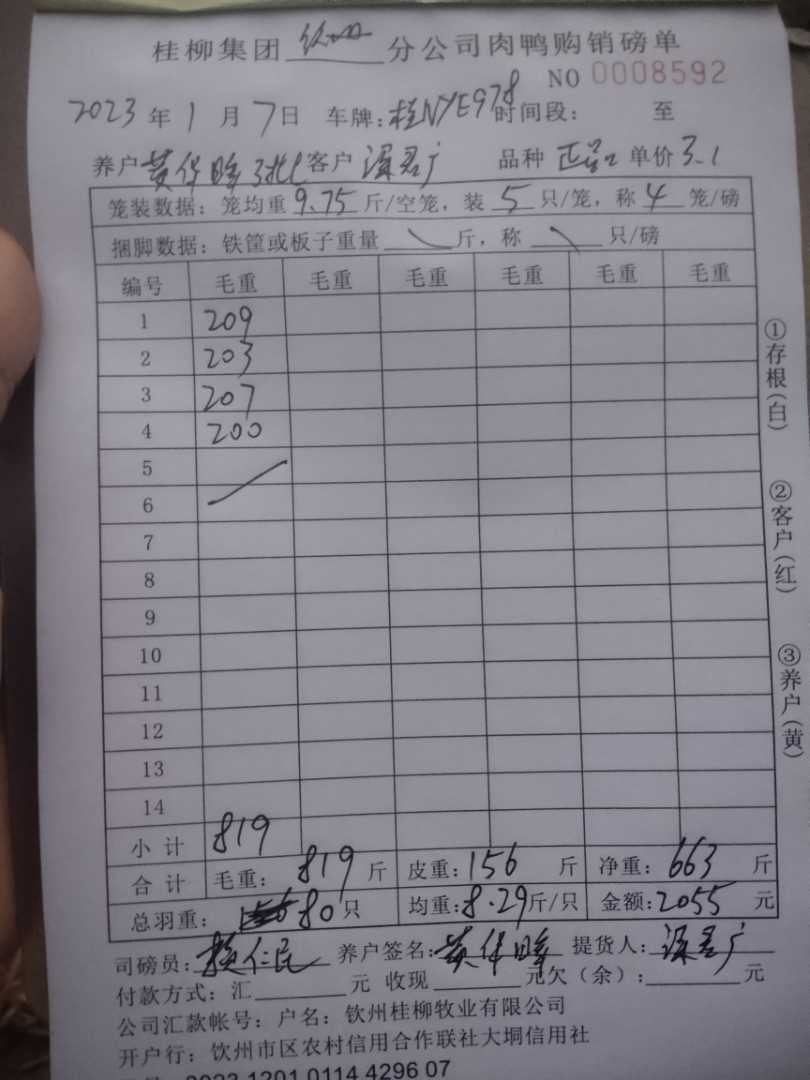 桂柳集团 钦州 分公司肉鸭购销磅单
NO 0008592
2023 年 1 月 7 日 车牌: 桂NYE978 时间段: 至
养户 黄保晖 客户 品种 正品 单价 3.1
笼装数据: 笼均重 9.75 斤/空笼, 装 5 只/笼, 称 4 笼/磅
捆脚数据: 铁筐或板子重量 斤, 称 只/磅
编号 毛重 毛重 毛重 毛重 毛重 毛重
1 209
2 203
3 207
4 200
5
6
7
8
9
10
11
12
13
14
小计 819
合计 毛重: 819 斤 皮重: 156 斤 净重: 663 斤
总羽重: 80 只 均重: 8.29 斤/只 金额: 2055 元
司磅员: 仁民 养户签名: 黄保晖 提货人:
付款方式: 汇 元 收现 元欠(余): 元
公司汇款帐号: 户名: 钦州桂柳牧业有限公司
开户行: 钦州市区农村信用合作联社大垌信用社
2023 1201 0114 4296 07
①存根(白)
②客户(红)
③养户(黄)